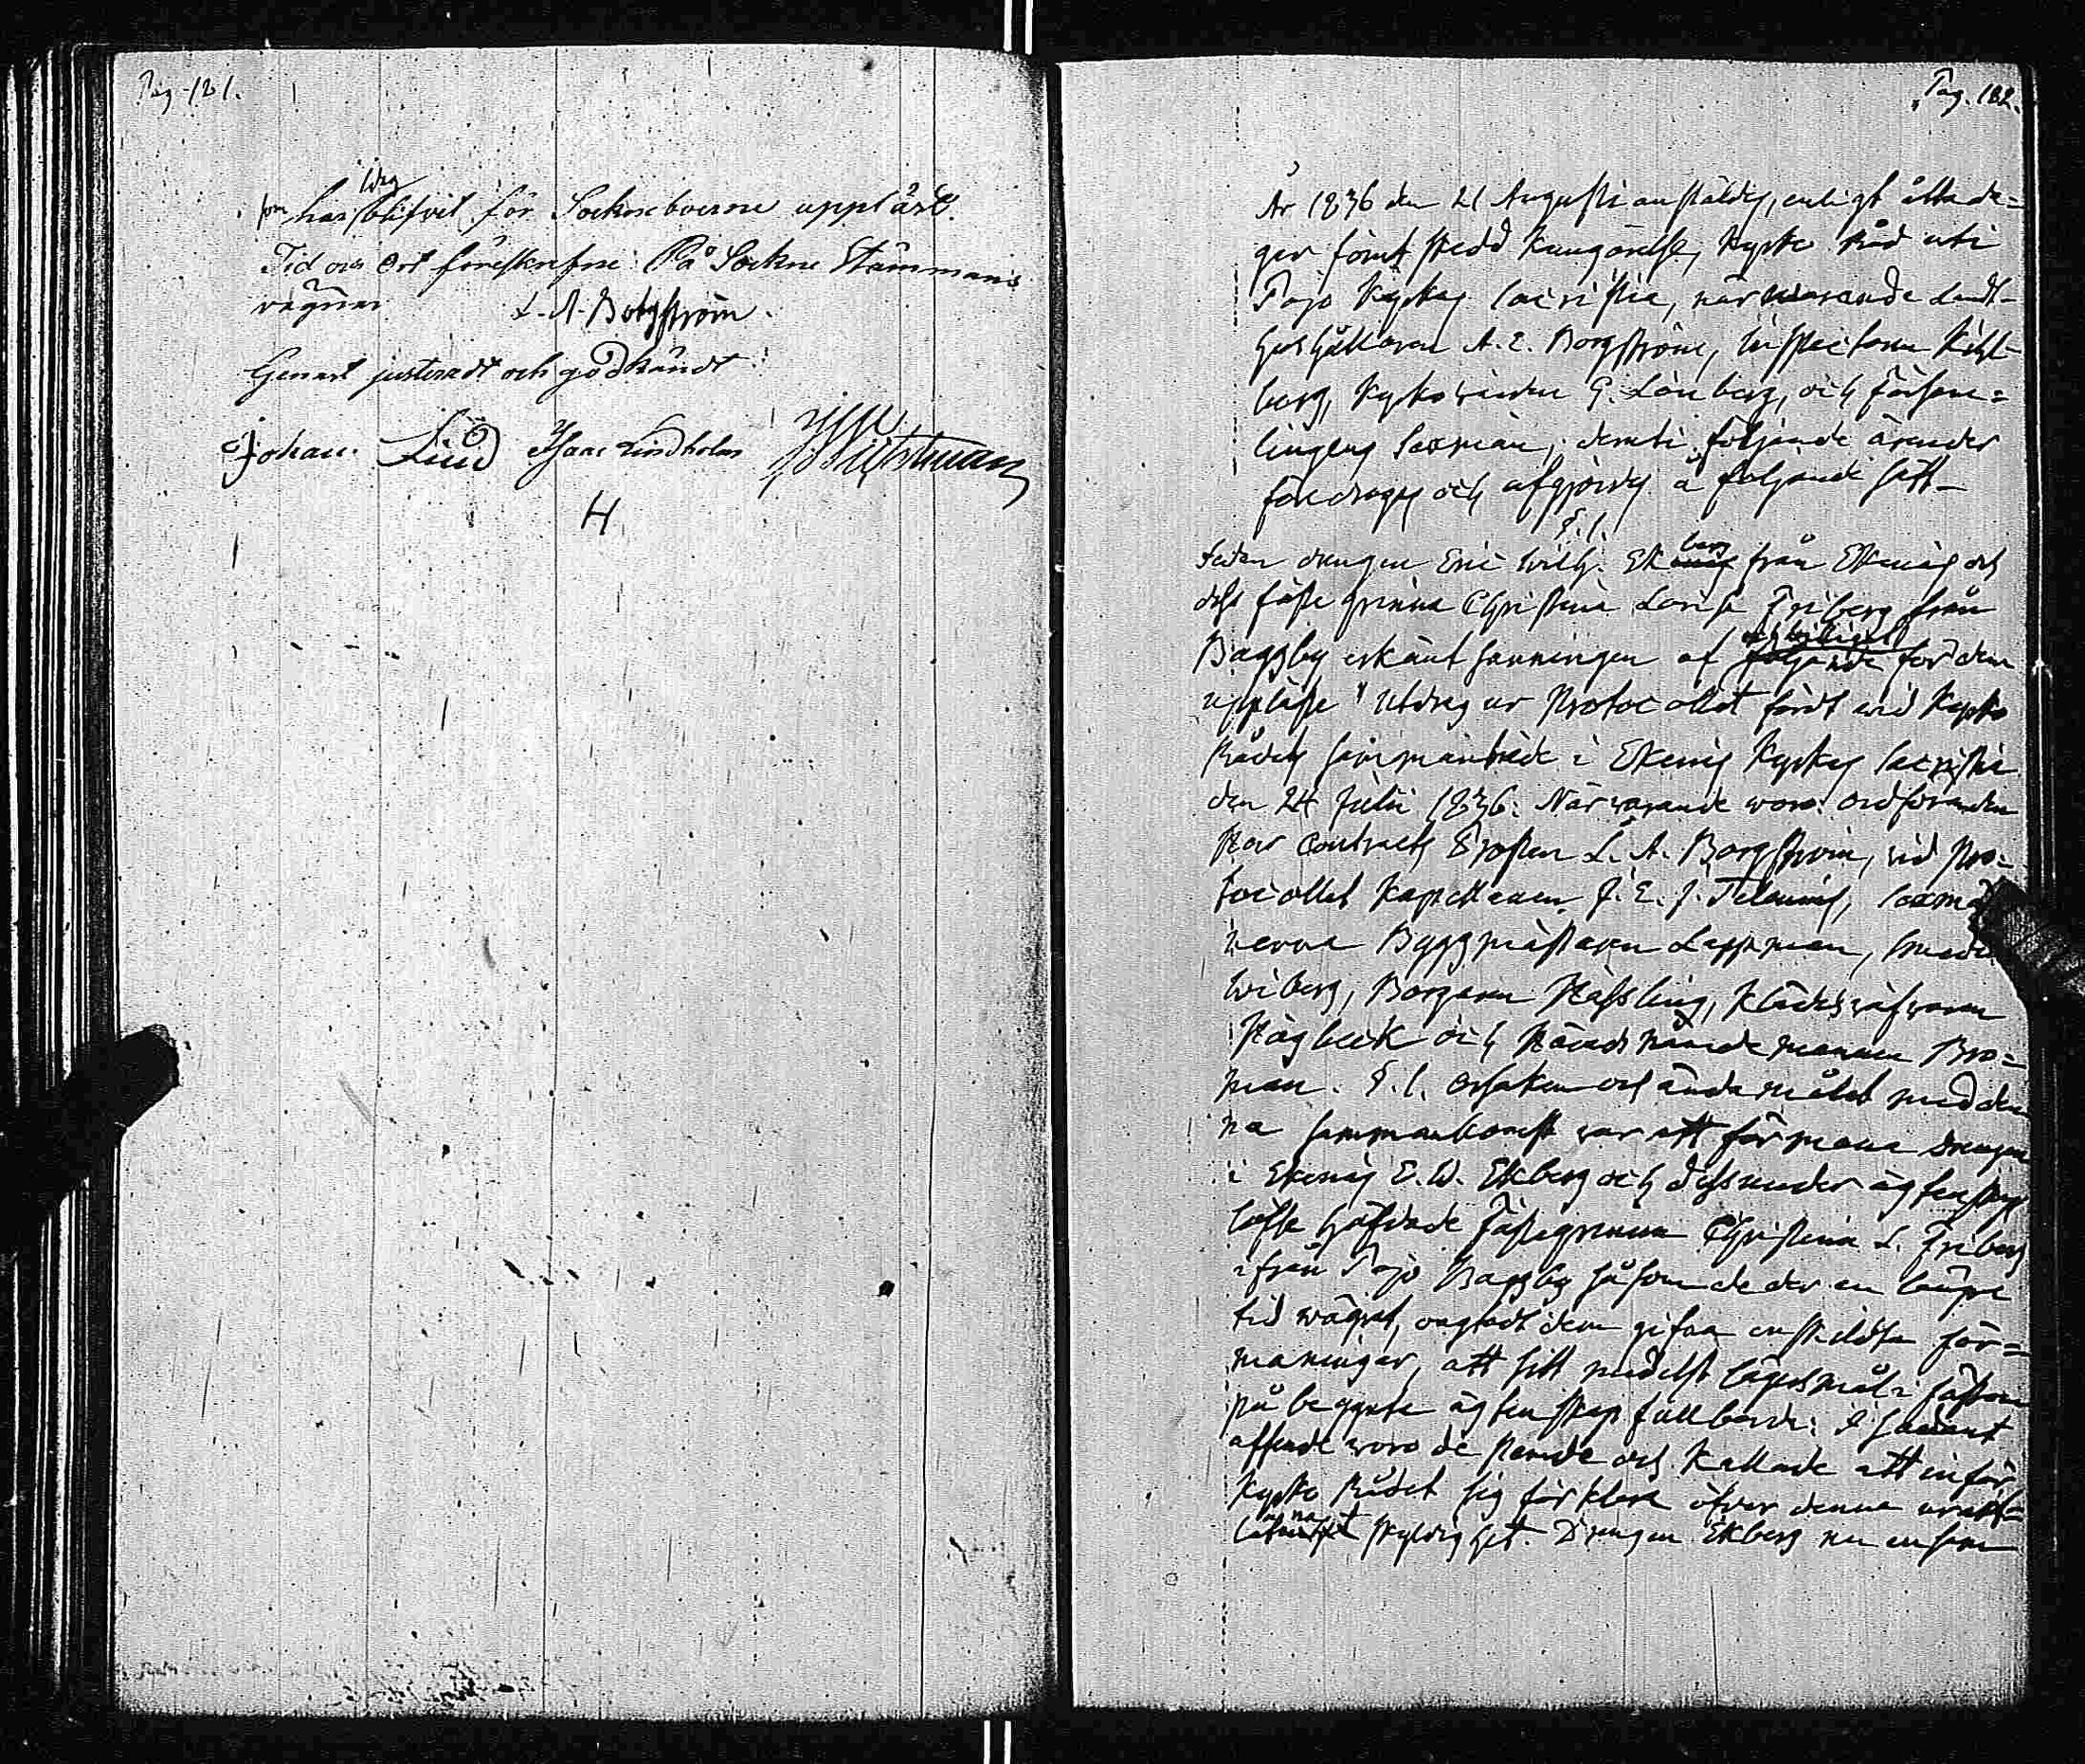 Pag. 121.
som har blifvit för Sockneboerne uppläst.
Tid och Ort föreskrifne. På Sockne Stämmans
vägnar L. A. Borgström.
Genast justeradt och godkändt:
Johan Lind Isaac Lindholm
H
Pag. 122.
År 1836 den 21 Augusti anstäldes, enligt åtta da=
gar förut skedd kungörelse, Kyrko Råd uti
Pojo Kyrkas Sacristia, närwarande Landt-
hushållaren A. E. Borgström, Inspectoren Kihl-
berg, Kyrkowärden G. Lönberg, och Försam=
lingens Sexmän; demti följande ärender
föredrogs och afgjordes å följande sätt-
§. 1.
Sedan drengen Eric Wilh. Ekberg från Ekenäs och
dess fäste qvinna Christina Lovisa Friberg från
Baggby erkänt sanningen af följande för dem
uppläste Utdrag ur Protocollet fördt wid Kyrko
Rådets sammanträde i Ekenäs Kyrkas Sacristia
den 24 Julii 1836. Närvarande woro: Ordföranden
Herr Contracts Prosten L. A. Borgström, vid Pro=
tocollet Kapellanen J. E. J. Telenius, Sexmä
nerne Byggmästaren Leppman, Smeden
Wiberg, Borgaren Hässling, Klädeswäfvaren
Högbeck och Häradsnämndemannen Bro=
man. §. 1. Orsaken och ändamålet med den
na sammankomst var att förmana drengen
i Ekenäs E. W. Ekberg och dess under ägtenskaps
löfte häfdade Fästeqvinna Christina L. Friberg
ifrån Pojo Baggby såsom de der en längre
tid wägrat, oagtadt dem gifna enskildta för=
maningar, att sitt medelst lägersmål i fästom
påbegynte ägtenskap fullborda. I sådant
afseende woro de stemde och kallade att inför
Kyrko Rådet sig förklara öfver denna urakt=
låtna skyldighet. Drengen Ekberg nu ensam